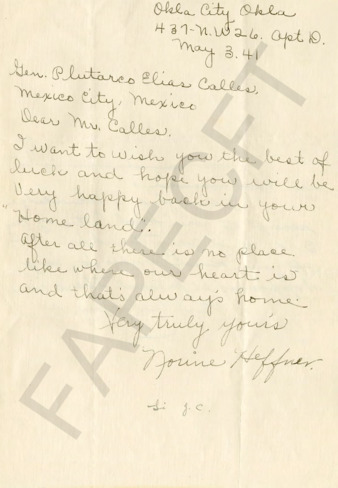 Okla City, Okla
437-N.W 26. Apt D.
May 3. 41
Gen. Plutarco Elias Calles.
Mexico City, Mexico
Dear Mr. Calles.
I want to wish you the best of
luck and hope you will be
very happy back in your
"Home land".
After all there is no place
like where our heart is
and that's always home.
Very truly yours
Norine Heffner.
FAPECFT